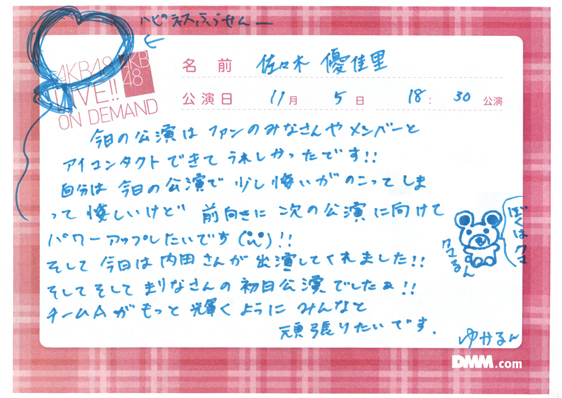 ハピネスふうせんー
AKB48
LIVE!!
ON DEMAND
AKB
48
名 前 佐々木 優佳里
公演日 11月 5日 18:30公演
今日の公演は ファンのみなさんや メンバーと
アイコンタクトできて うれしかったです!!
自分は 今日の公演で 少し悔いがのこってしま
って 悔しいけど 前向きに 次の公演に向けて
パワーアップしたいです(¨)!!
そして 今日は 内田さんが 出演してくれました!!
そしてそして まりなさんの 初日公演 でしたぁ!!
チームAが もっと 輝くように みんなと
頑張りたいです.
ぼくはクマ
クマるん
ゆかるん
DMM.com